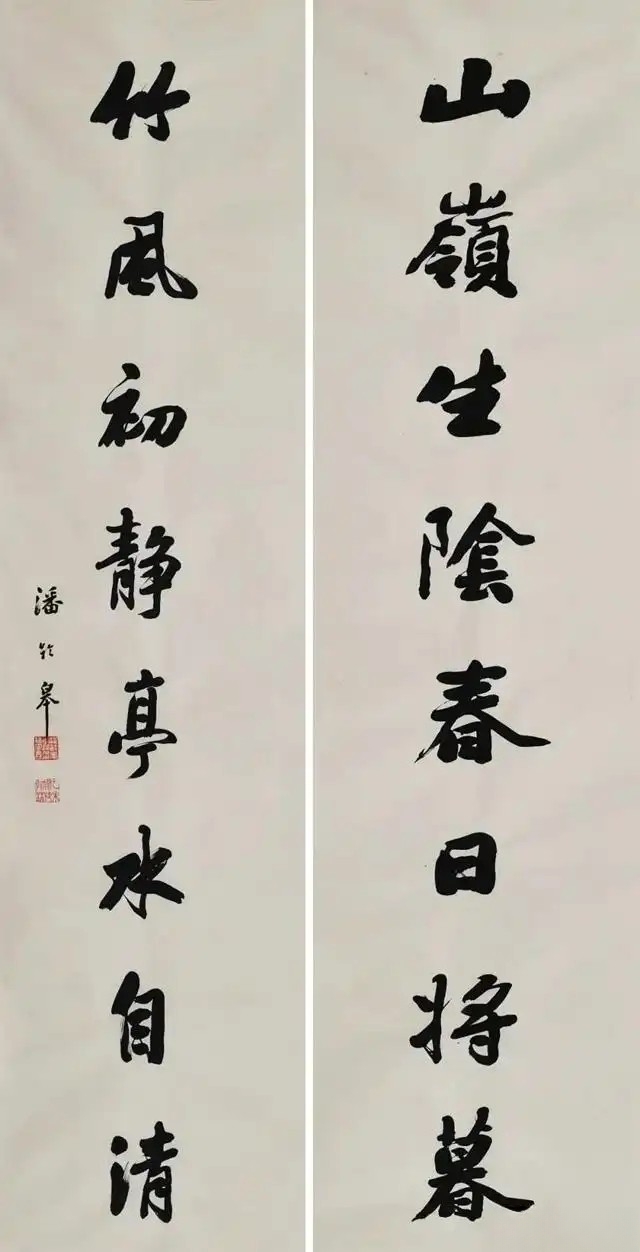 山嶺生陰春日将暮
竹風初静亭水自清
潘齡皋